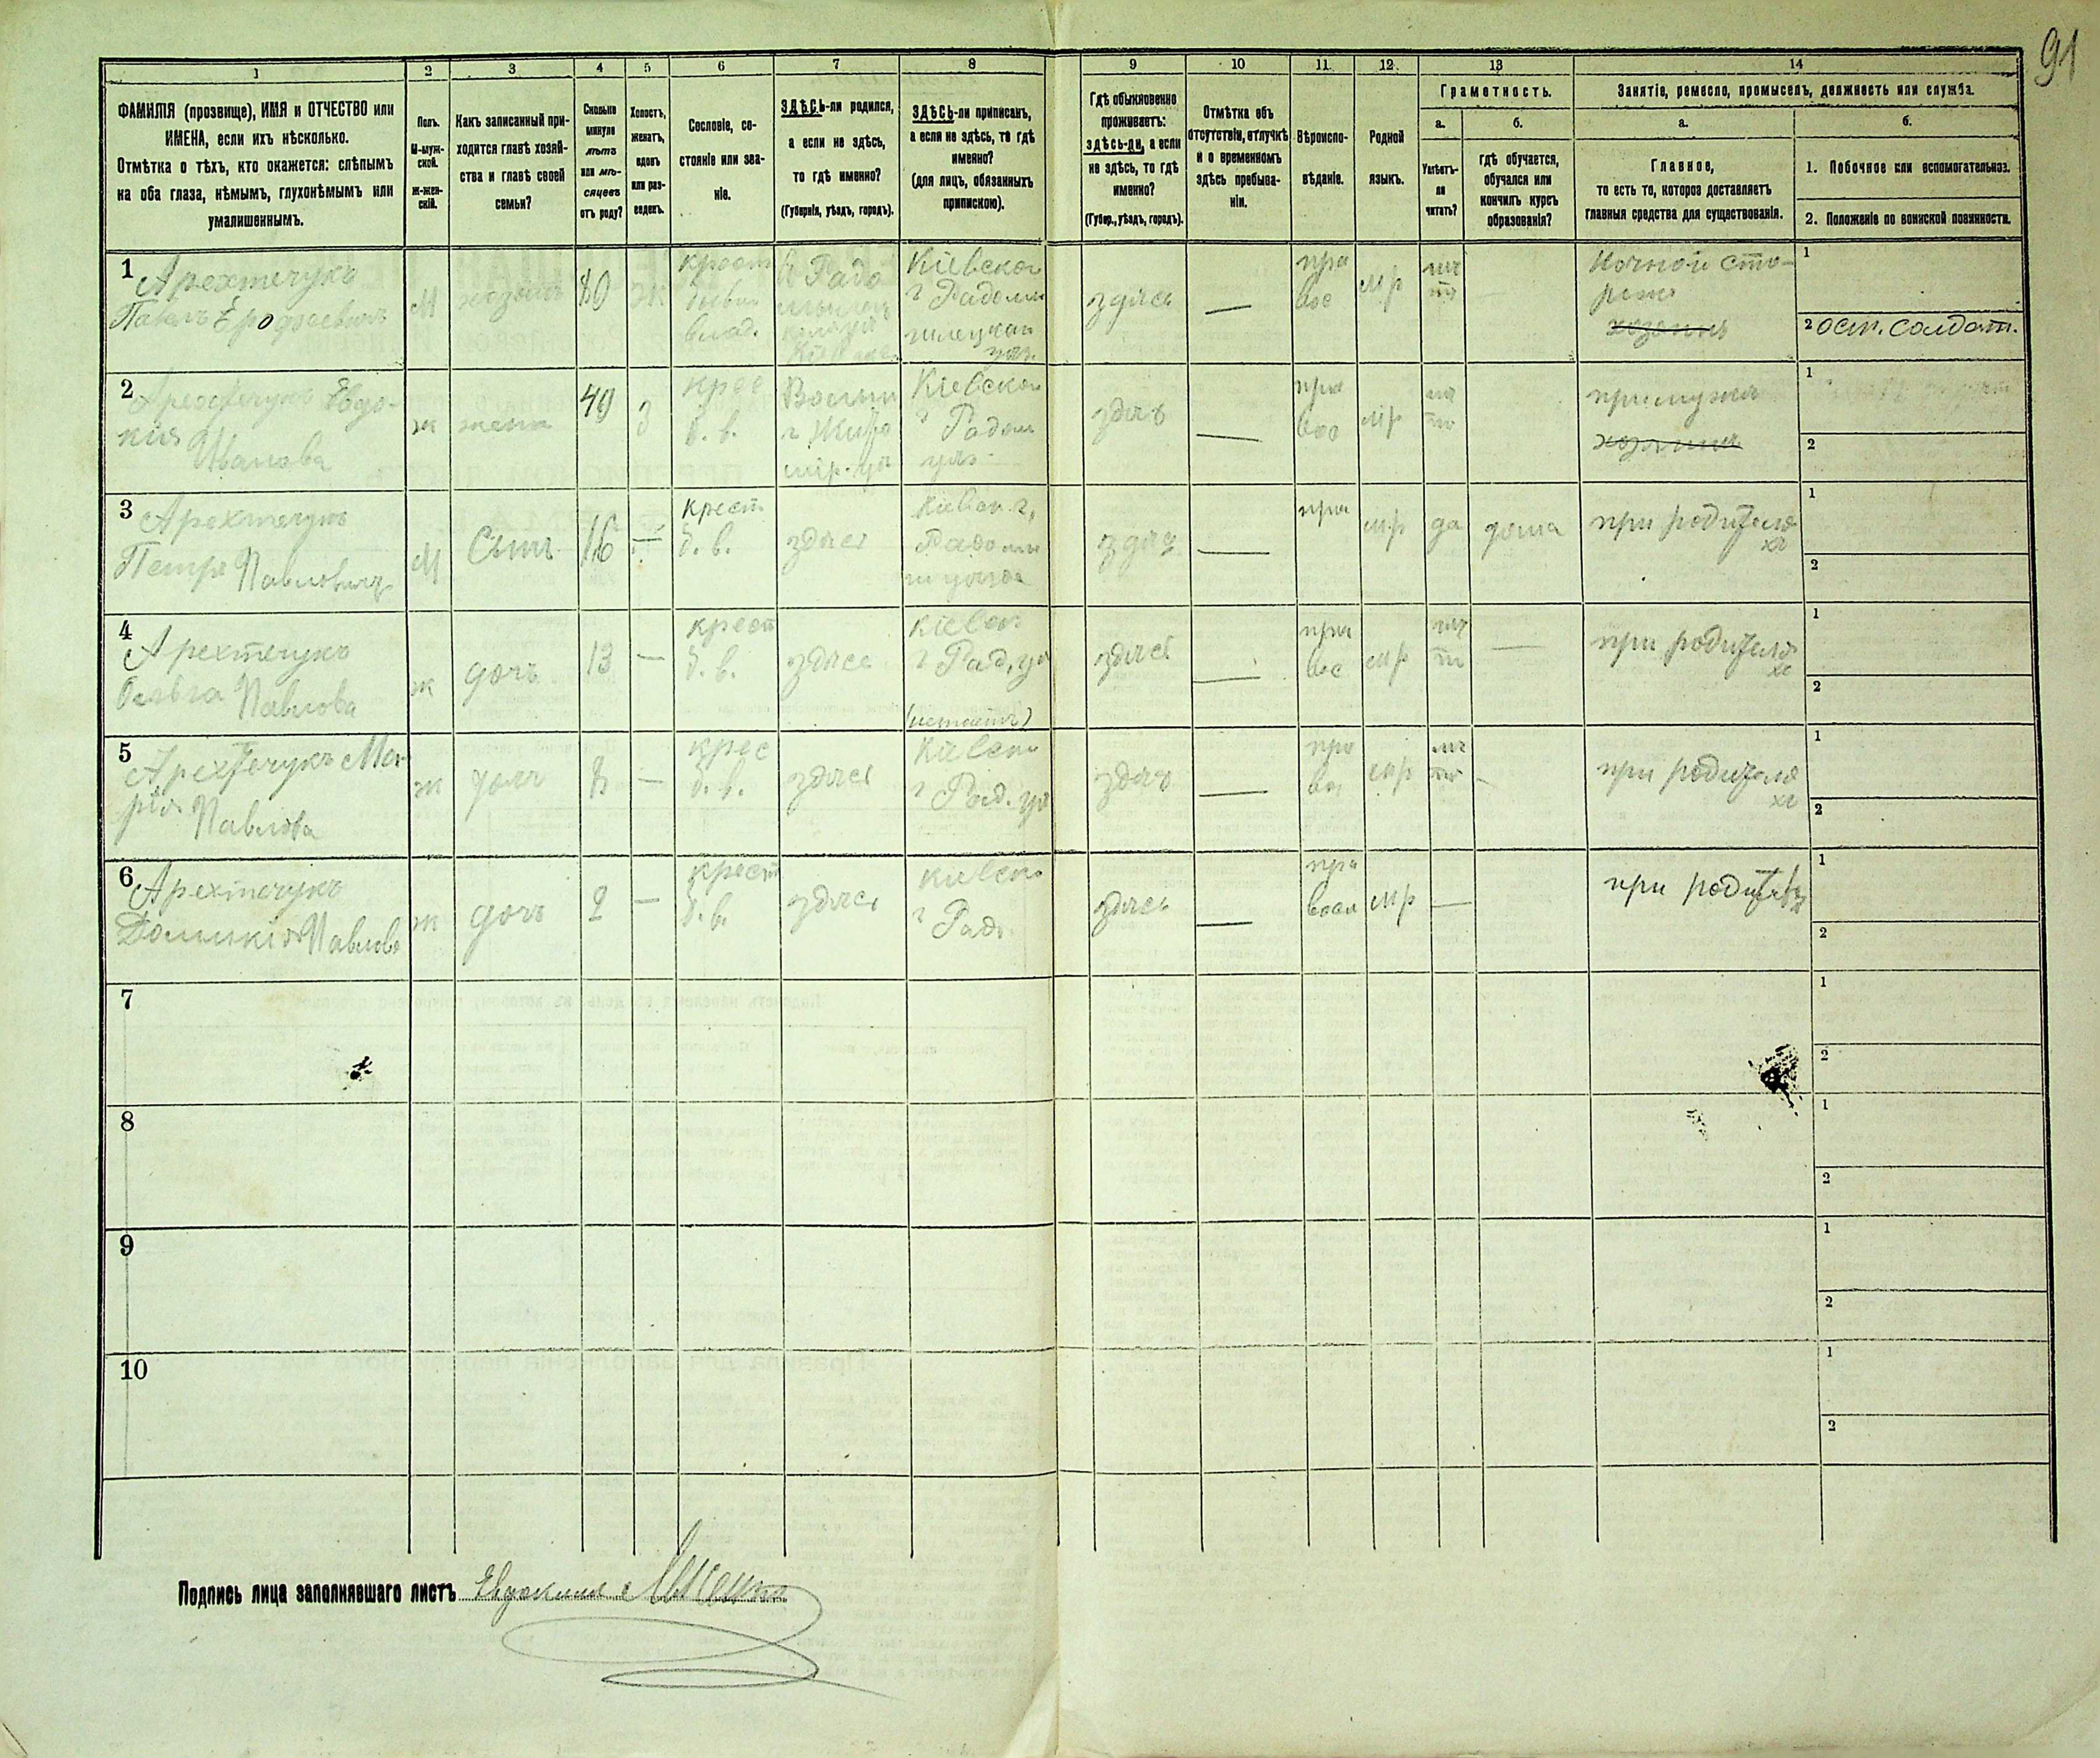 91
1 2 3 4 5 6 7 8 9 10 11 12 13 14
ФАМИЛІЯ (прозвище), ИМЯ и ОТЧЕСТВО или
ИМЕНА, если ихъ нѣсколько.
Отмѣтка о тѣхъ, кто окажется: слѣпымъ
на оба глаза, нѣмымъ, глухонѣмымъ или
умалишеннымъ.
Полъ.
М-муж-
ской.
ж-жен-
скій.
Какъ записанный при-
ходится главѣ хозяй-
ства и главѣ своей
семьи?
Сколько
минуло
лѣтъ
или мѣ-
сяцевъ
отъ роду?
Холостъ,
женатъ,
вдовъ
или раз-
веденъ.
Сословіе, со-
стояніе или зва-
ніе.
ЗДѢСЬ-ли родился,
а если не здѣсь,
то гдѣ именно?
(Губернія, уѣздъ, городъ).
ЗДѢСЬ-ли приписанъ,
а если не здѣсь, то гдѣ
именно?
(для лицъ, обязанныхъ
припискою).
Гдѣ обыкновенно
проживаетъ:
здѣсь-ли, а если
не здѣсь, то гдѣ
именно?
(Губер., уѣздъ, городъ).
Отмѣтка объ
отсутствіи, отлучкѣ
и о временномъ
здѣсь пребыва-
ніи.
Вѣроиспо-
вѣданіе.
Родной
языкъ.
Грамотность.
а.
Умѣетъ-
ли
читать?
б.
гдѣ обучается,
обучался или
кончилъ курсъ
образованія?
Занятіе, ремесло, промыселъ, должность или служба.
а.
Главное,
то есть то, которое доставляетъ
главныя средства для существованія.
б.
1. Побочное или вспомогательное.
2. Положеніе по воинской повинности.
1
Арехтечукъ
Павелъ Ерофеевичъ
М
хозяинъ
ж
крест
бывш
влад.
Кіевской
г Радомы
здѣсь
—
пра
вос
мр
нѣ
тъ
—
Ночной сто-
рожъ
хозяинъ
1
2 ост. солдат.
2
Арехтечукъ Евдо-
кія
Иванова
ж
жена
49
З
крес
б. в.
Волын
г Жито
мір. уѣ
Кіевской
г Радом
уѣз
здѣсь
—
пра
вос
мр
нѣ
тъ
при мужѣ
хозяина
1
2
3
Арехтечукъ
Петръ Павловичъ
М
Сынъ
16
—
крест
б. в.
здѣсь
Кіевск г,
Радомы
здѣсь
—
пра
мр
да
дома
при родителя
хъ
1
2
4
Арехтечукъ
Ольга Павлова
ж
дочь
13
—
крест
б. в.
здѣсь
Кіевск
г Рад. уѣ
здѣсь
—
пра
вос
мр
нѣ
тъ
—
при родителя
хъ
1
2
5
Арехтечукъ Ма-
рія Павлова
ж
дочь
8
—
крес
б. в.
здѣсь
Кіевск
г Рад. уѣ
здѣсь
—
пра
вос
мр
нѣ
тъ
—
при родителя
хъ
1
2
6
Арехтечукъ
Домникія Павлова
ж
дочь
2
—
крест
б. в.
здѣсь
Кіевск
г Рад.
здѣсь
—
пра
восл
мр
—
при родителях
1
2
7
1
2
8
1
2
9
1
2
10
1
2
Подпись лица заполнявшаго листъ